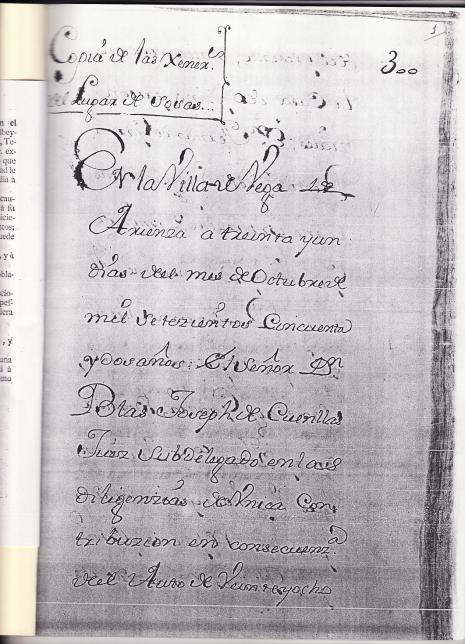 1
Copia de las Xener.s
del Lugar de Sosas...
300
En la Villa de Vega de
Arienza a treinta y un
dias del mes de Octubre de
mil setezientos Cincuenta
y dos años: El Señor Dn
Blas Joseph de Cuenllas
Juez Subdelegado en las
diligenzias de Vnica Con
tribuzion en consecuenz.a
del Auto de Veinte y ocho